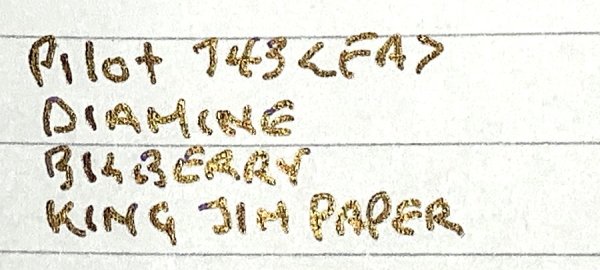 Pilot 743 <FA>
DIAMINE
BILBERRY
KING JIM PAPER